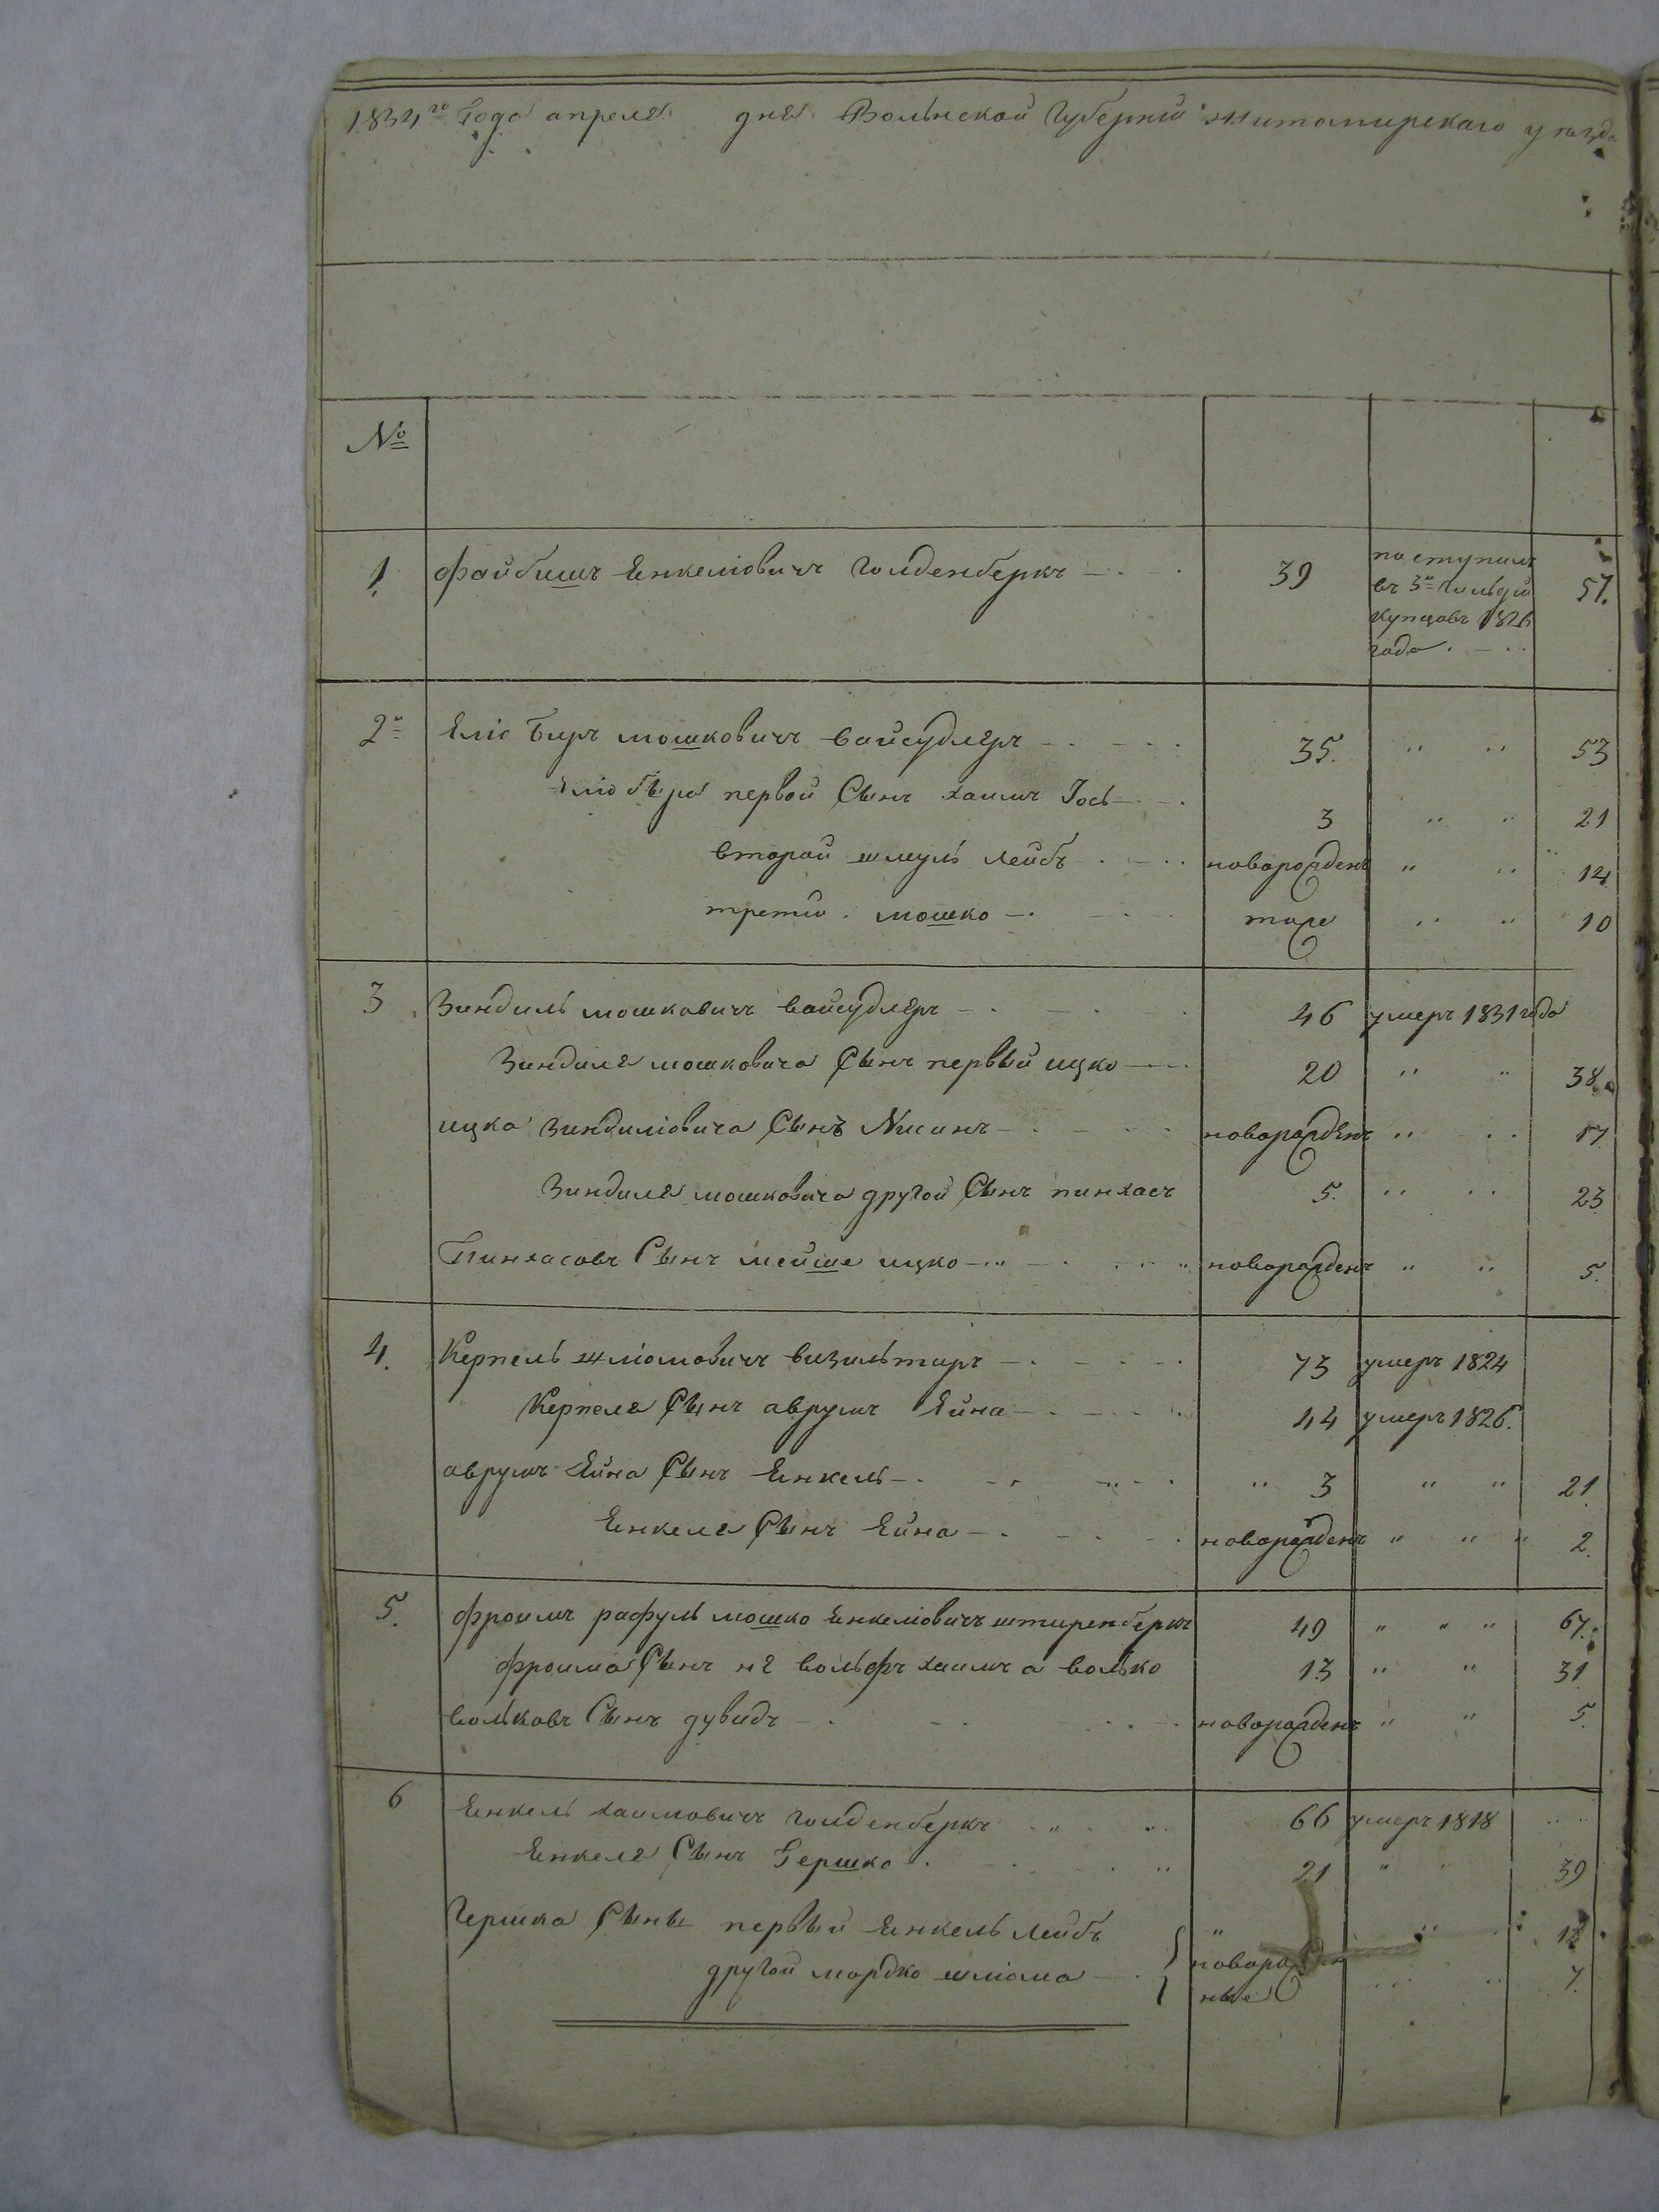 1834го Года апреля дня Волынской Губернии житомирскаго уезда
№
1. Файбишъ Енкеліовичъ Голденберкъ 39 поступилъ въ 3ю Гильдию купцовъ 1826 года 57.
2й Еліо Биръ мошковичъ вайсудлеръ 35. " " 53
еліо бера первой Сынъ хаимъ Іось 3 " " 21
второй шмуль лейбъ новорожденъ " " 14
третий мошко тоже " " 10
3 Зиндиль мошковичъ вайсудлеръ 46 умеръ 1831 года
Зиндиля мошковича Сынъ первый ицко 20 " " 38
ицка зиндиліовича Сынъ Нисинъ новорожденъ " " 17
Зиндиля мошковича другой Сынъ пинхасъ 5. " " 23
Пинхасовъ Сынъ мейше ицко новорожденъ " " 5.
4. Керпель шліомовичъ визильтиръ 73 умеръ 1824
Керпеля Сынъ аврумъ Ейна 44 умеръ 1826.
аврумъ Ейна Сынъ Енкель " 3 " " 21
Енкеля Сынъ Ейна новорожденъ " " " 2.
5. Фроимъ рафуль мошко Енкеліовичъ штиренберкъ 49 " " " 67.
Фроима Сынъ не вольфъ хаимъ а волько 13 " " 31
вольковъ Сынъ дувидъ новорожденъ " " 5.
6 Енкель хаимовичъ Голденберкъ 66 умеръ 1818
Енкеля Сынъ Гершко 21 " " 39
Гершка Сыны первый Енкель Лейбъ " " 18
другой мордко шліома новорожденные " " 7.